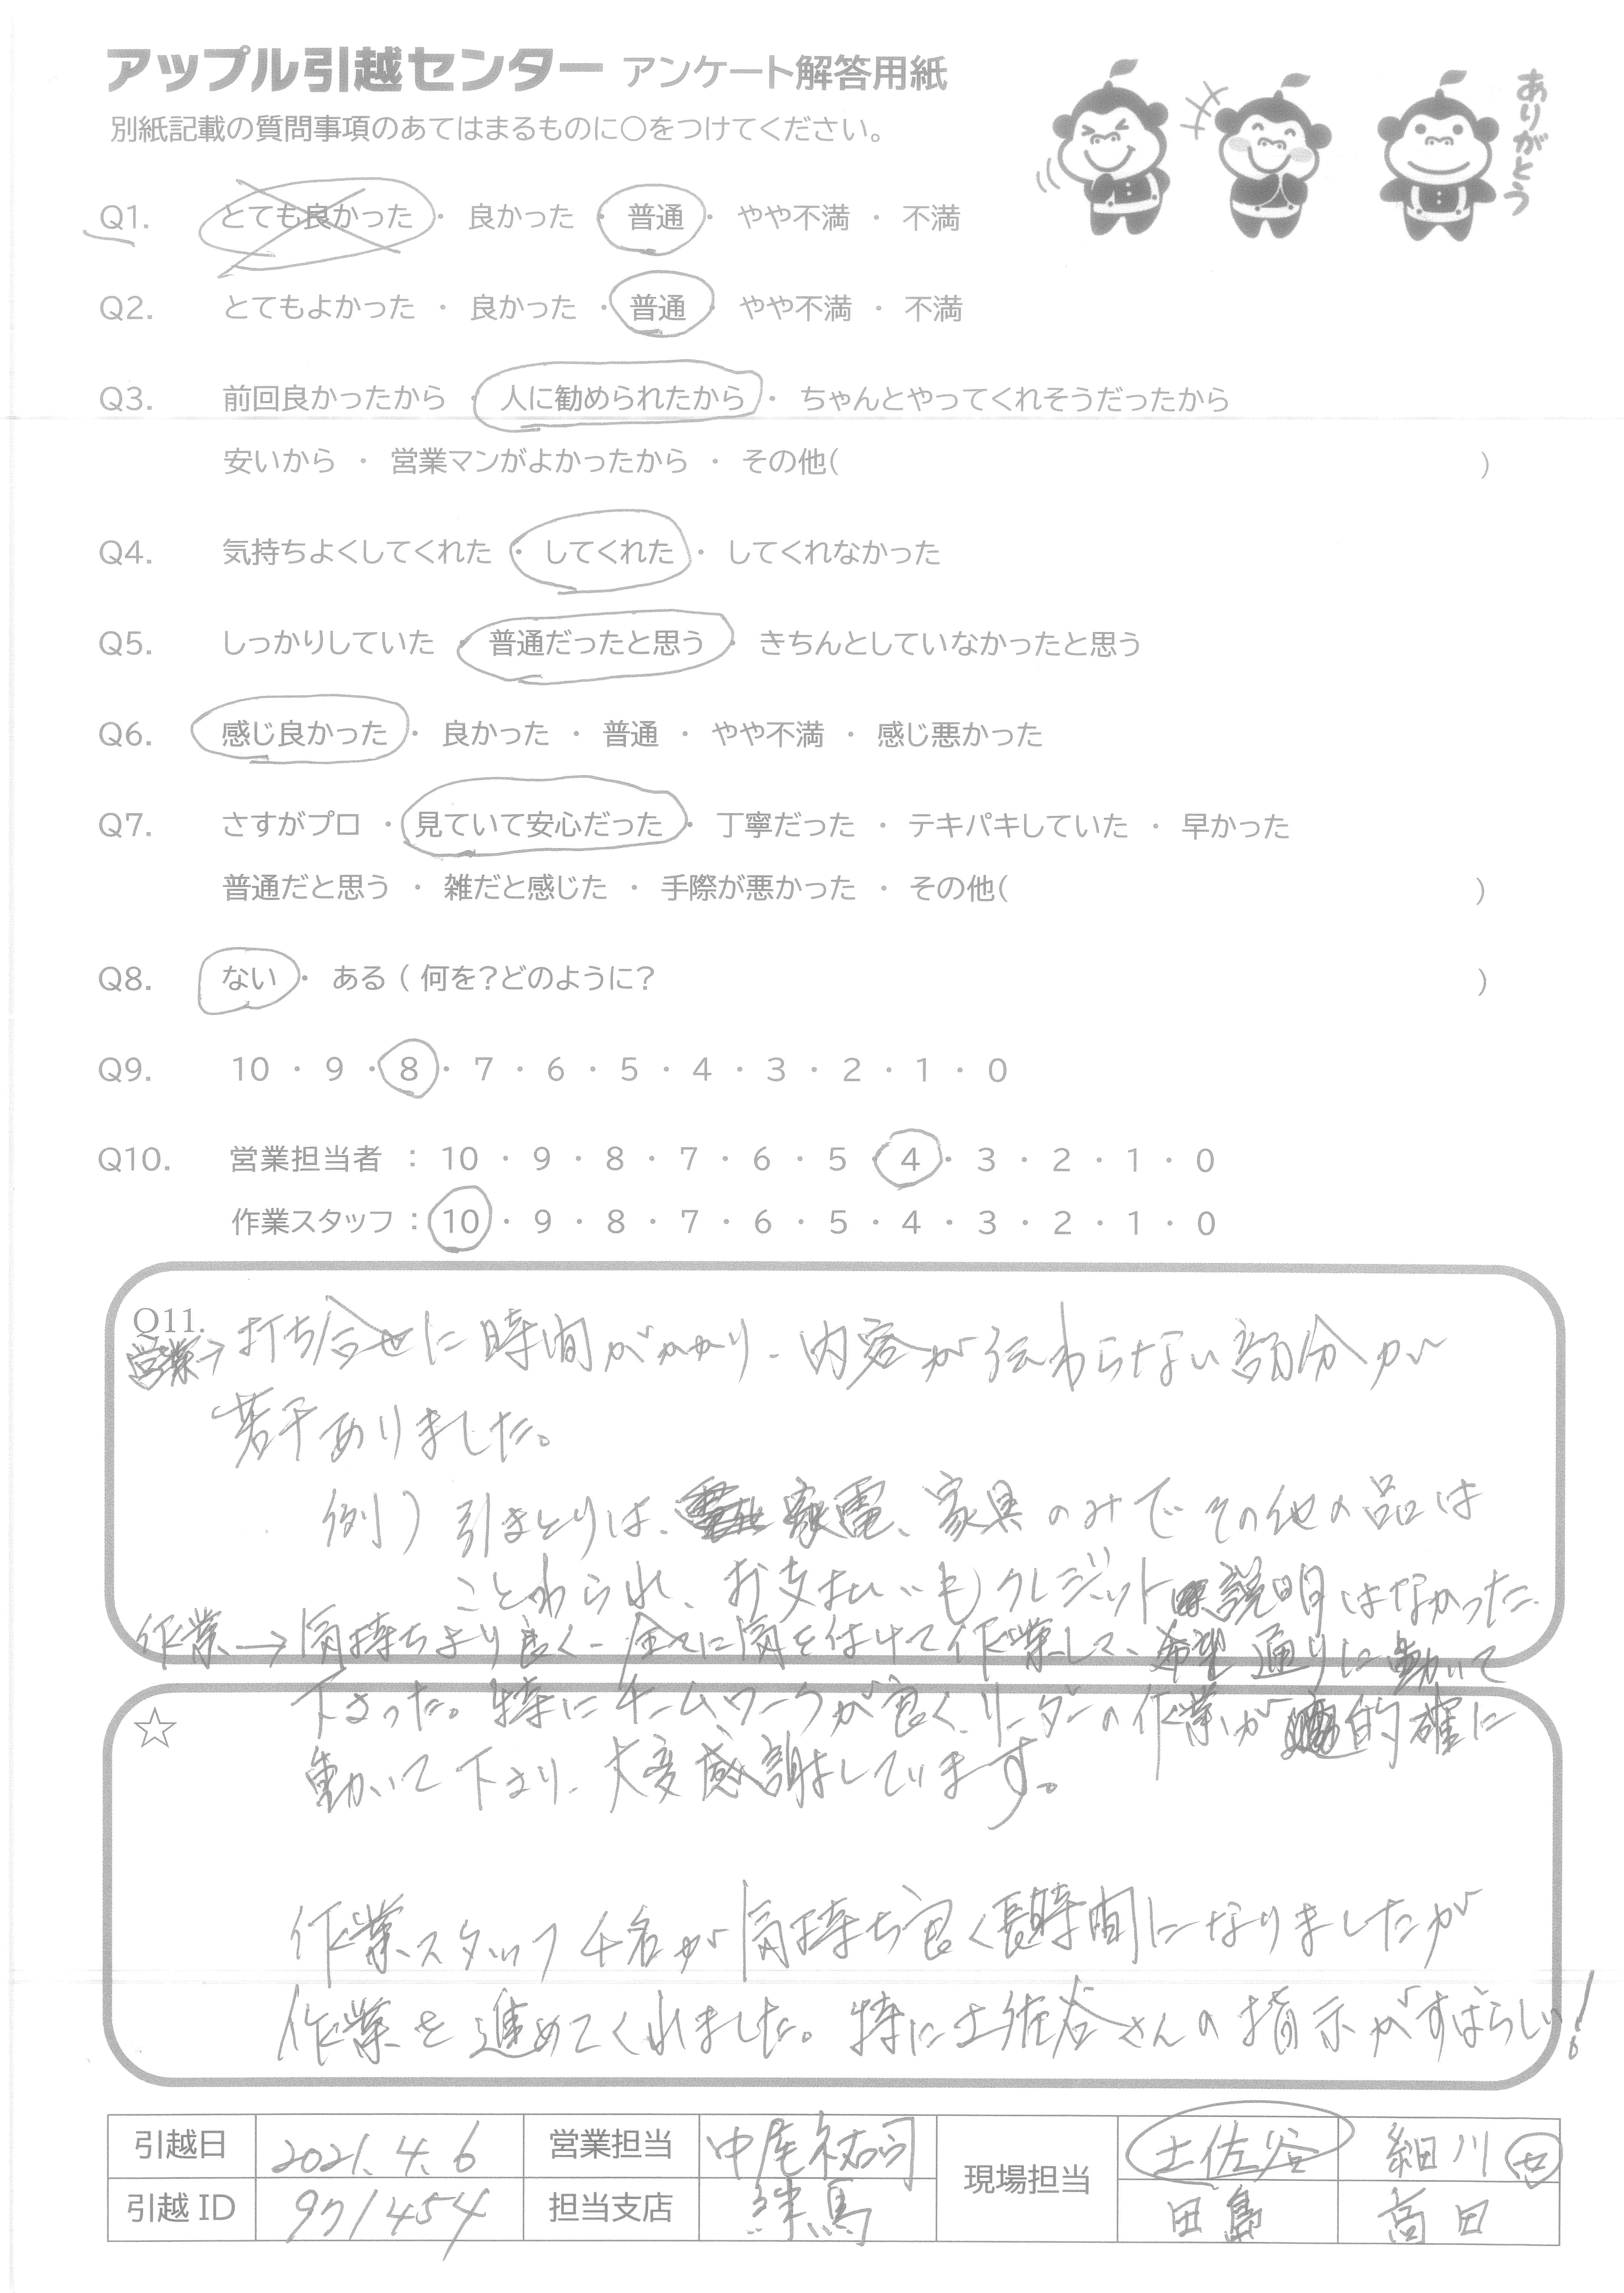 アップル引越センター アンケート解答用紙
ありがとう
別紙記載の質問事項のあてはまるものに○をつけてください。
Q1. とても良かった ・ 良かった ・ 普通 ・ やや不満 ・ 不満
Q2. とてもよかった ・ 良かった ・ 普通 ・ やや不満 ・ 不満
Q3. 前回良かったから ・ 人に勧められたから ・ ちゃんとやってくれそうだったから
安いから ・ 営業マンがよかったから ・ その他( )
Q4. 気持ちよくしてくれた ・ してくれた ・ してくれなかった
Q5. しっかりしていた ・ 普通だったと思う ・ きちんとしていなかったと思う
Q6. 感じ良かった ・ 良かった ・ 普通 ・ やや不満 ・ 感じ悪かった
Q7. さすがプロ ・ 見ていて安心だった ・ 丁寧だった ・ テキパキしていた ・ 早かった
普通だと思う ・ 雑だと感じた ・ 手際が悪かった ・ その他( )
Q8. ない ・ ある ( 何を?どのように? )
Q9. 10 ・ 9 ・ 8 ・ 7 ・ 6 ・ 5 ・ 4 ・ 3 ・ 2 ・ 1 ・ 0
Q10. 営業担当者 : 10 ・ 9 ・ 8 ・ 7 ・ 6 ・ 5 ・ 4 ・ 3 ・ 2 ・ 1 ・ 0
作業スタッフ : 10 ・ 9 ・ 8 ・ 7 ・ 6 ・ 5 ・ 4 ・ 3 ・ 2 ・ 1 ・ 0
Q11.
営業→打ち合せに時間がかかり、内容が伝わらない部分が
若干ありました。
例) 引きとりは、家電、家具のみでその他の品は
ことわられ、お支払いもクレジット説明はなかった。
作業→気持ちより良く、全てに気を付けて作業して、希望通りに動いて
下さった。特にチームワークが良く、リーダーの作業が的確に
☆
動いて下さり、大変感謝しています。
作業スタッフ4名が気持ち良く長時間になりましたが
作業を進めてくれました。特に土佐谷さんの指示がすばらしい!
引越日 2021.4.6 営業担当 中尾祐司 現場担当 土佐谷 細川
引越ID 971454 担当支店 練馬 田島 高田